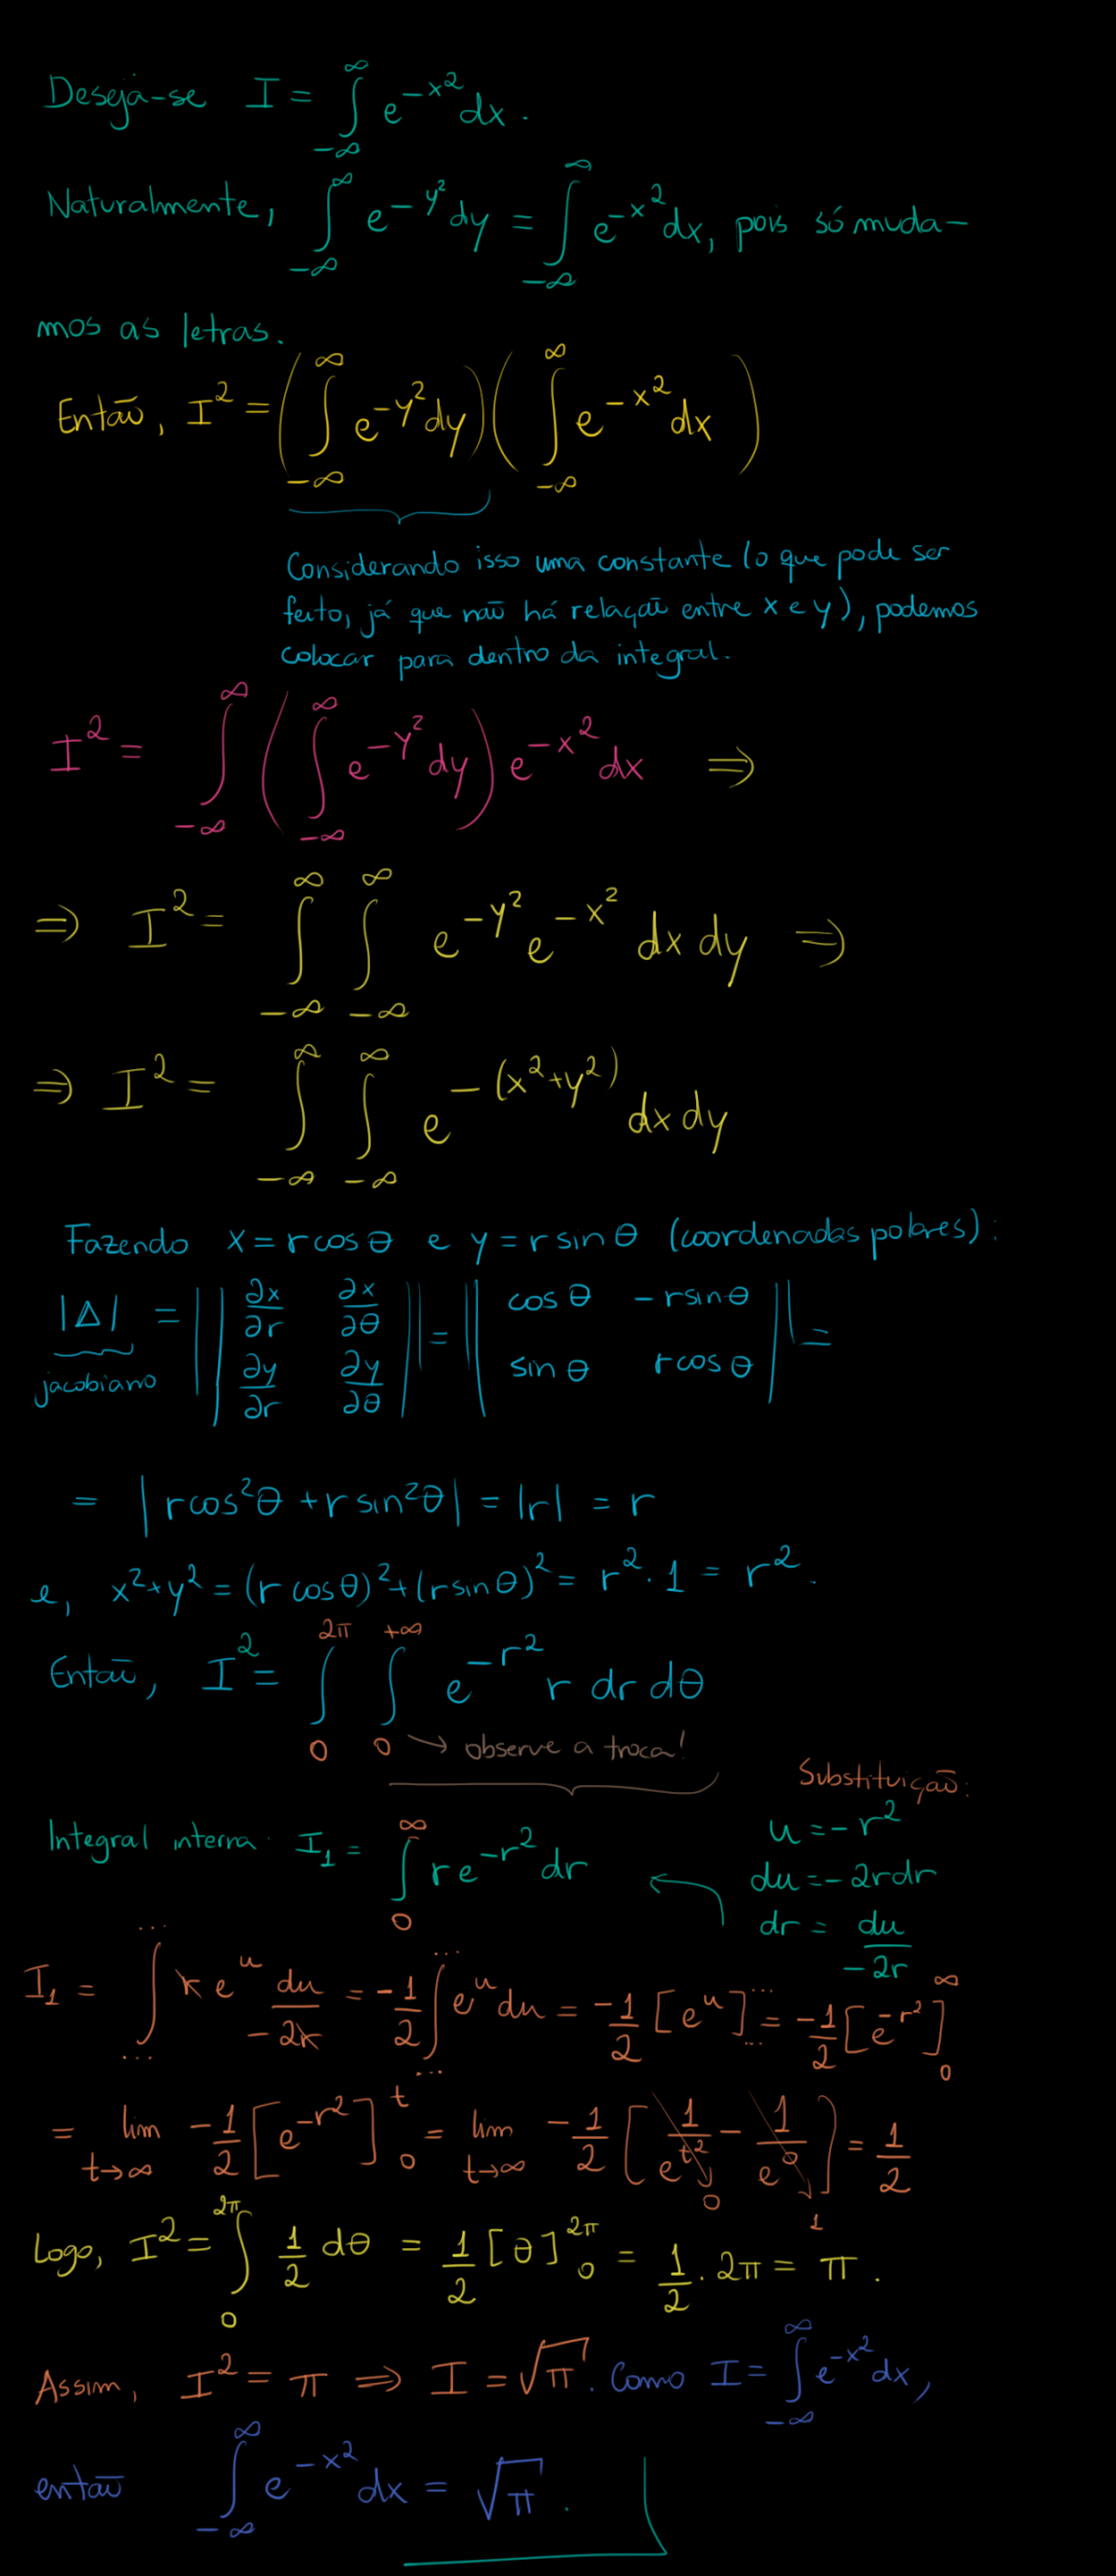 Deseja-se I = ∫_{-∞}^{∞} e^{-x²} dx.
Naturalmente, ∫_{-∞}^{∞} e^{-y²} dy = ∫_{-∞}^{∞} e^{-x²} dx, pois só muda-
mos as letras.
Então, I² = (∫_{-∞}^{∞} e^{-y²} dy) (∫_{-∞}^{∞} e^{-x²} dx)
Considerando isso uma constante (o que pode ser
feito, já que não há relação entre x e y), podemos
colocar para dentro da integral.
I² = ∫_{-∞}^{∞} (∫_{-∞}^{∞} e^{-y²} dy) e^{-x²} dx ⇒
⇒ I² = ∫_{-∞}^{∞} ∫_{-∞}^{∞} e^{-y²} e^{-x²} dx dy ⇒
⇒ I² = ∫_{-∞}^{∞} ∫_{-∞}^{∞} e^{-(x²+y²)} dx dy
Fazendo x = r cos θ e y = r sin θ (coordenadas polares):
|Δ| = || ∂x/∂r ∂x/∂θ ; ∂y/∂r ∂y/∂θ || = || cos θ -r sin θ ; sin θ r cos θ || =
jacobiano
= |r cos²θ + r sin²θ| = |r| = r
e, x²+y² = (r cos θ)² + (r sin θ)² = r² · 1 = r².
Então, I² = ∫_{0}^{2π} ∫_{0}^{+∞} e^{-r²} r dr dθ
→ observe a troca!
Substituição:
Integral interna: I₁ = ∫_{0}^{∞} r e^{-r²} dr
u = -r²
du = -2r dr
dr = du/(-2r)
I₁ = ∫_{...}^{...} r e^{u} du/(-2r) = -1/2 ∫_{...}^{...} e^{u} du = -1/2 [e^{u}]_{...}^{...} = -1/2 [e^{-r²}]_{0}^{∞}
= lim_{t→∞} -1/2 [e^{-r²}]_{0}^{t} = lim_{t→∞} -1/2 [1/e^{t²} - 1/e^{0}] = 1/2
0 1
Logo, I² = ∫_{0}^{2π} 1/2 dθ = 1/2 [θ]_{0}^{2π} = 1/2 · 2π = π.
Assim, I² = π ⇒ I = √π. Como I = ∫_{-∞}^{∞} e^{-x²} dx,
então ∫_{-∞}^{∞} e^{-x²} dx = √π.